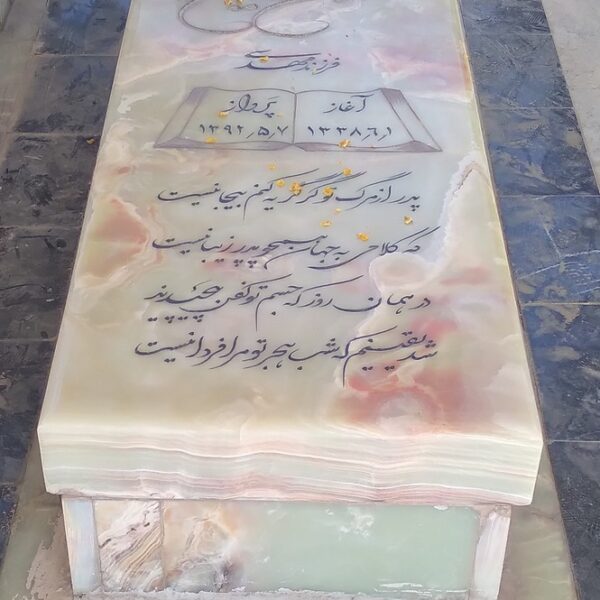 فرزند مهدی
آغاز پرواز
۱۳۳۸٫۶٫۱ ۱۳۹۲٫۵٫۷
پدر از مرگ تو گر گریه کنم بیجا نیست
که گلی به جهان همچو پدر زیبا نیست
در همان روز که جسم تو کفن پیچیدند
شد یقینم که شب هجر تو را فردا نیست